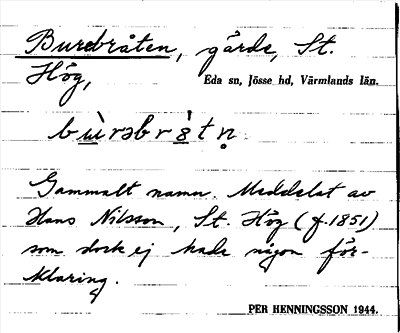 Burebråten, gärde, St.
Hög,
Eda sn, Jösse hd, Värmlands län.
bù̱rəbrɜ̱̀tn̥
Gammalt namn. Meddelat av
Hans Nilsson, St. Hög (f. 1851)
som dock ej hade någon för-
klaring.
PER HENNINGSSON 1944.